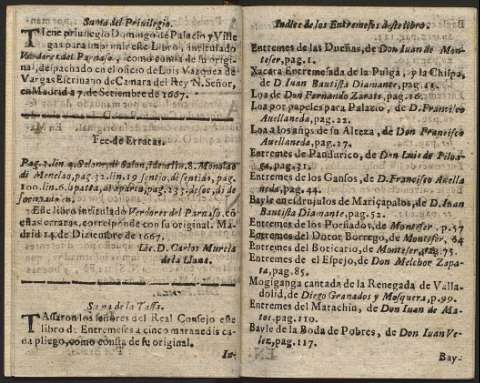 Suma del Priuilegio.
Tiene priuilegio Domingo de Palacio y Ville
gas para imprimir este Libro, intitulado
Verdores del Parnaso, como consta de su origi-
nal, despachado en el oficio de Luis Vazquez de
Vargas Escriuano de Camara del Rey N. Señor,
en Madrid a 7. de Setiembre de 1667.
Fee de Erratas.
Pag. 3. lin. 4.
de Menelao, pag. 32. lin. 19
100. lin. 6. pag. 233.
Este libro intitulado Verdores del Parnaso, cõ
estas erratas, corresponde con su original. Ma-
drid 14. de Diziembre de 1667.
Lic. D. Carlos Murcia
de la Llana.
Suma de la Tassa.
Tassaron los señores del Real Consejo este
libro de Entremeses a cinco marauedis ca-
da pliego, como consta de su original.
In-
Indice de los Entremeses deste libro.
Entremes de las Dueñas, de Don Iuan de Mon-
teser, pag. 1.
Xacara Entremesada de la Pulga, y la Chispa,
de D. Iuan Bautista Diamante, pag. 11.
Loa de Don Fernando Zarate, pag. 16.
Loa por papeles para Palacio, de D. Francisco
Auellaneda, pag. 22.
Loa a los años de su Alteza, de Don Francisco
Auellaneda, pag. 27.
Entremes de Pandurico, de Don Luis de
pag. 31.
Entremes de los Gansos, de D. Francisco Auella
neda, pag. 44.
Bayle en esdrujulos de Mariçapalos, de D. Iuan
Bautista Diamante, pag. 52.
Entremes de los Porfiados, de Monteser, p. 57
Entremes del Dotor Borrego, de Monteser, 64
Entremes del Boticario, de Monteser, 75.
Entremes de el Espejo, de Don Melchor Zapa-
ta, pag. 85.
Mogiganga cantada de la Renegada de Valla-
dolid, de Diego Granados y Mosquera, p. 99.
Entremes del Matachin, de Don Iuan de Ma-
tos, pag. 110.
Bayle de la Boda de Pobres, de Don Iuan Ve-
lez, pag. 117.
Bay-